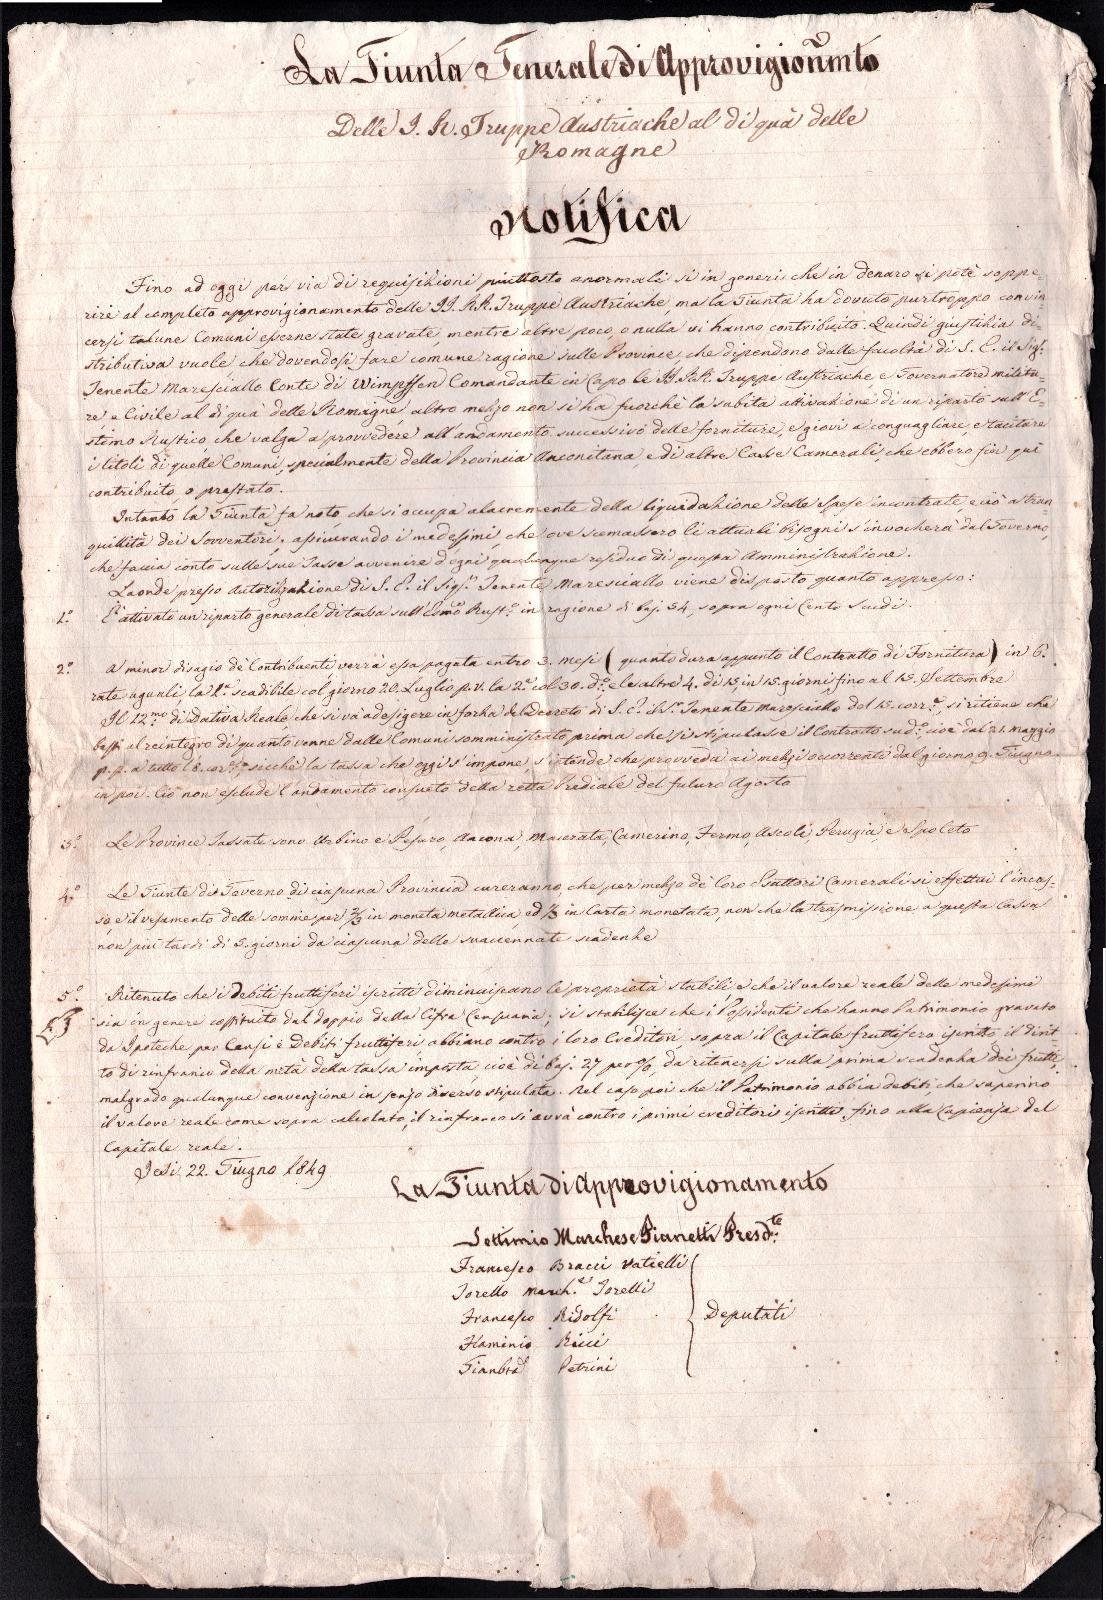 La Giunta Generale di Approvigionmto
Delle I. R. Truppe Austriache al di quà delle
Romagne
Notifica
Fino ad oggi per via di requisizioni piuttosto anormali si in generi che in denaro si potè soppe-
rire al completo approvigionamento delle II. RR. Truppe Austriache, ma la Giunta ha dovuto purtroppo convin
cersi talune Comuni esserne state gravate, mentre altre poco, o nulla vi hanno contribuito. Quindi giustizia di-
stributiva vuole, che dovendosi fare comune ragione sulle Provincie, che dipendono dalle facoltà di S. E. il Sigr.
Tenente Maresciallo Conte di Wimpffen Comandante in Capo le II. RR. Truppe Austriache e Governatore milita-
re, e Civile al di quà delle Romagne altro mezzo non si ha fuorchè la subita attivazione di un riparto sull'E-
stimo Rustico che valga a provvedere all'andamento successivo delle forniture, e giovi a conguagliare e tacitare
i titoli di quelle Comuni, specialmente della Provincia Anconitana, e di altre Casse Camerali, che ebbero fin quì
contribuito, o prestato.
Intanto la Giunta fa noto, che si occupa alacremente della liquidazione delle Spese incontrate, e ciò a tran
quillità dei Sovventori, assicurando i medesimi, che ove scemassero li attuali bisogni s'invocherà dal Governo,
che faccia conto sulle sue Tasse avvenire d'ogni qualunque residuo di questa Amministrazione.
Laonde presso Autorizzazione di S. E. il Sigr. Tenente Maresciallo viene disposto quanto appresso:
1.° E' attivato un riparto generale di tassa sull'Estmo Rust.° in ragione di baj. 54, sopra ogni Cento Scudi.
2.° A minor disagio de' Contribuenti verrà essa pagata entro 3. mesi (quanto dura appunto il Contratto di Fornitura) in 6.
rate aguali, la 1.a scadibile col giorno 20. Luglio p.v. la 2.a col 30. d.°, e le altre 4. di 15, in 15. giorni, fino al 15. Settembre
Il 12.mo di Dativa Reale, che si và ad esigere in forza del Decreto di S. E. il Sr. Tenente Maresciallo del 15. corr.e, si ritiene che
basti al reintegro di quanto venne dalle Comuni somministrato prima che si stipulasse il Contratto sud.°, cioè dal 21. maggio
p.p. a tutto l'8. corr.e, sicchè la tassa che oggi s'impone, s'intende che provveda ai mezzi occorrenti dal giorno 9. Giugno
in poi. Ciò non esclude l'andamento consueto della retta Prediale del futuro Agosto
3.° Le Provincie Tassate sono Urbino e Pesaro, Ancona, Macerata, Camerino, Fermo, Ascoli, Perugia, e Spoleto
4.° Le Giunte di Governo di ciascuna Provincia cureranno, che per mezzo de' loro Esattori Camerali si effettui l'incas-
so, e il versamento delle somme per 2/3 in moneta metallica, ed 1/3 in Carta monetata, non che la trasmissione a questa Cassa
non più tardi di 5. giorni da ciascuna delle suaccennate scadenze
5.° Ritenuto che i debiti fruttiferi iscritti diminuiscano le proprietà stabili e che il valore reale delle medesime
sia in genere costituito dal doppio della Cifra Censuaria; si stabilisce che i Possidenti che hanno Patrimonio gravato
da Ipoteche per Censi e Debiti fruttiferi abbiano contro i loro Creditori, sopra il Capitale fruttifero iscritto il dirit-
to di rinfranco della metà della tassa imposta cioè di baj. 27 per %, da ritenersi sulla prima scadenza dei frutti,
malgrado qualunque convenzione in senso diverso stipulata. Nel caso poi che il Patrimonio abbia debiti, che superino
il valore reale come sopra calcolato, il rinfranco si avrà contro i primi creditori iscritti, fino alla Capienza del
Capitale reale.
Jesi 22. Giugno 1849
La Giunta di Approvigionamento
Settimio Marchese Pianetti Presd.te
Francesco Bracci Vatielli
Torello March.e Torelli
Francesco Ridolfi Deputati
Flaminio Ricci
Gianbta Petrini